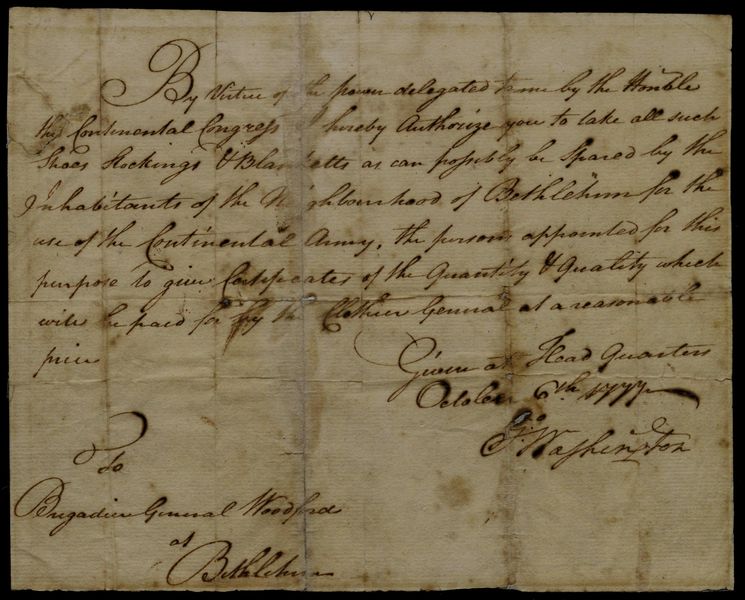 By Virtue of the power delegated to me by the Honble
the Continental Congress I hereby Authorize you to take all such
Shoes Stockings & Blanketts as can possibly be Spared by the
Inhabitants of the Neighbourhood of Bethlehem for the
use of the Continental Army, the persons appointed for this
purpose to give Certificates of the Quantity & Quality which
will be paid for by the Clothier General at a reasonable
price
Given at Head Quarters
October 6th 1777
Go
Washington
To
Brigadier General Woodford
at
Bethlehem